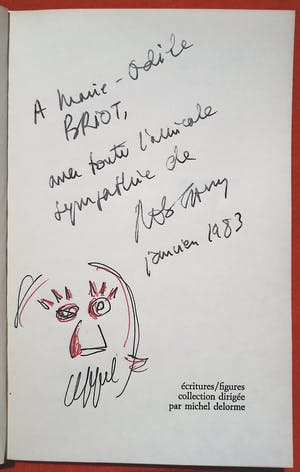 A Marie-Odile
BRIOT,
avec toute l'amicale
sympathie de
janvier 1983
écritures/figures
collection dirigée
par michel delorme